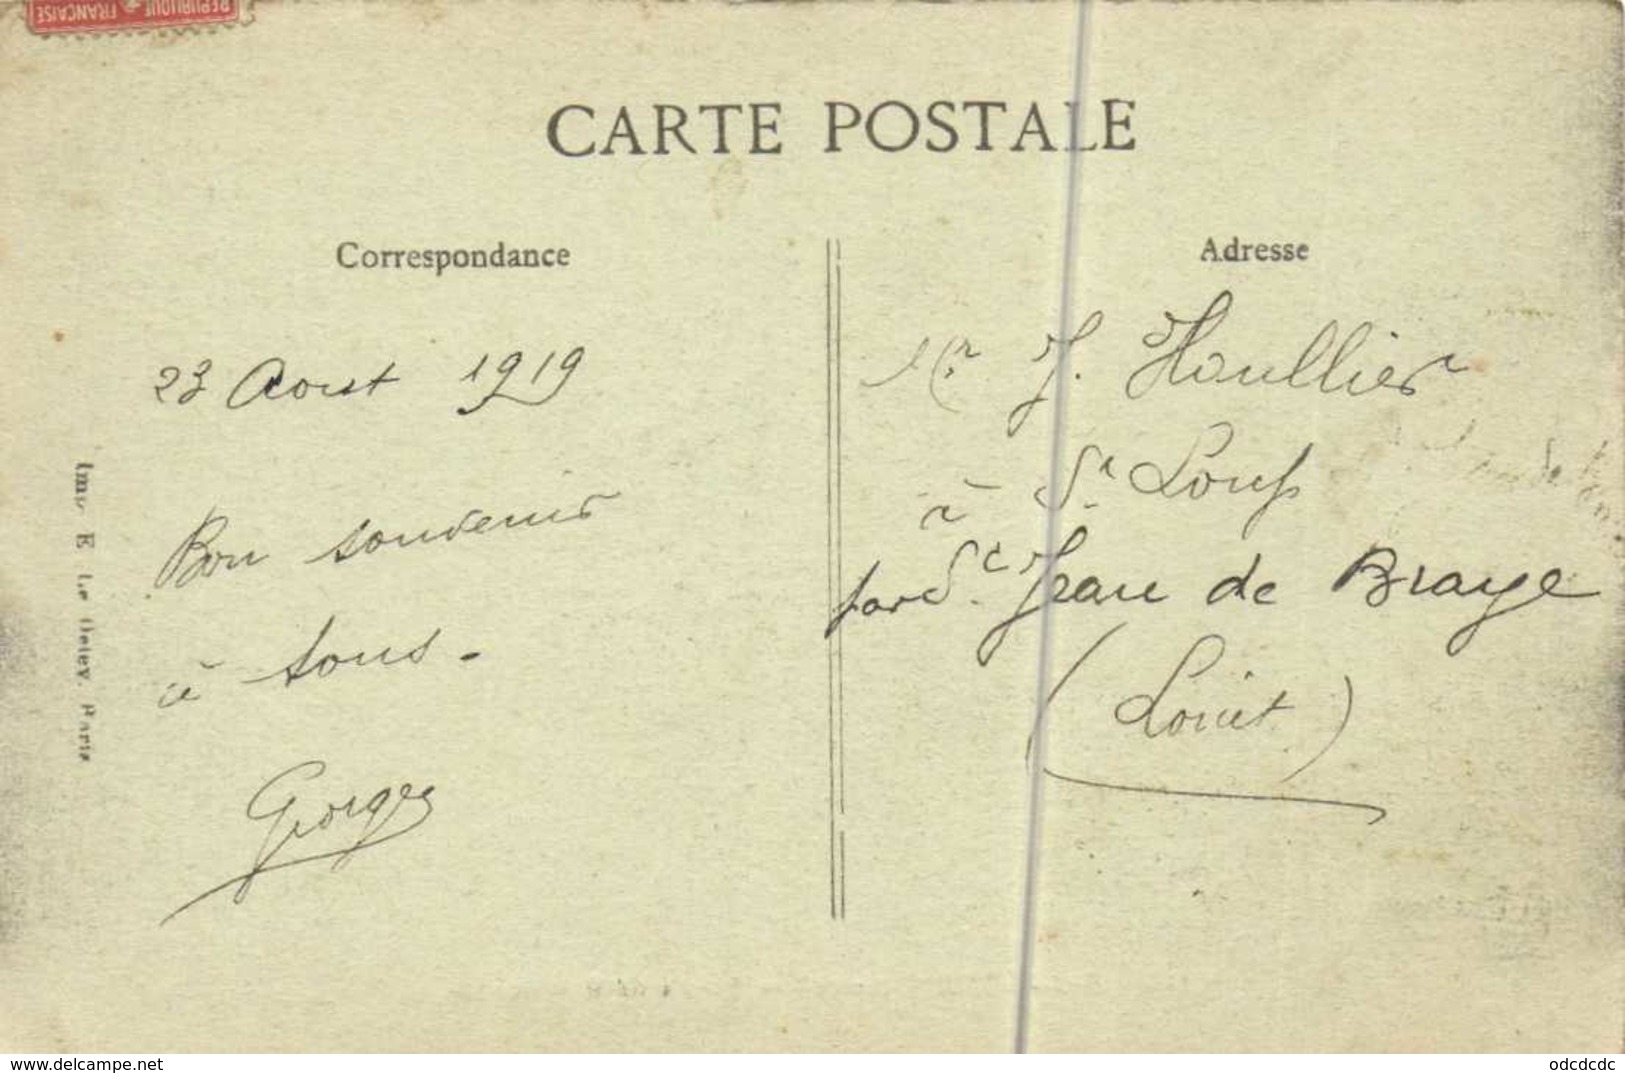 REPUBLIQUE FRANÇAISE
CARTE POSTALE
Correspondance
Adresse
23 Aout 1919
Bon souvenir
à tous.
Georges
Mr J. Houllier
à St Loup
par St Jean de Braye
(Loiret)
Imp. E. Le Deley, Paris
www.delcampe.net
odcdcdc